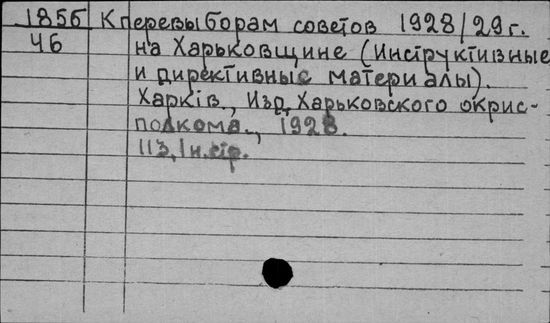 1856 К перевыборам советов 1928/29 г.
Ч6 на Харьковщине (Инструктивные
и директивные материалы).
Харкiв., Изд. Харьковского окрис-
полкома., 1928.
113, 1 н. стр.